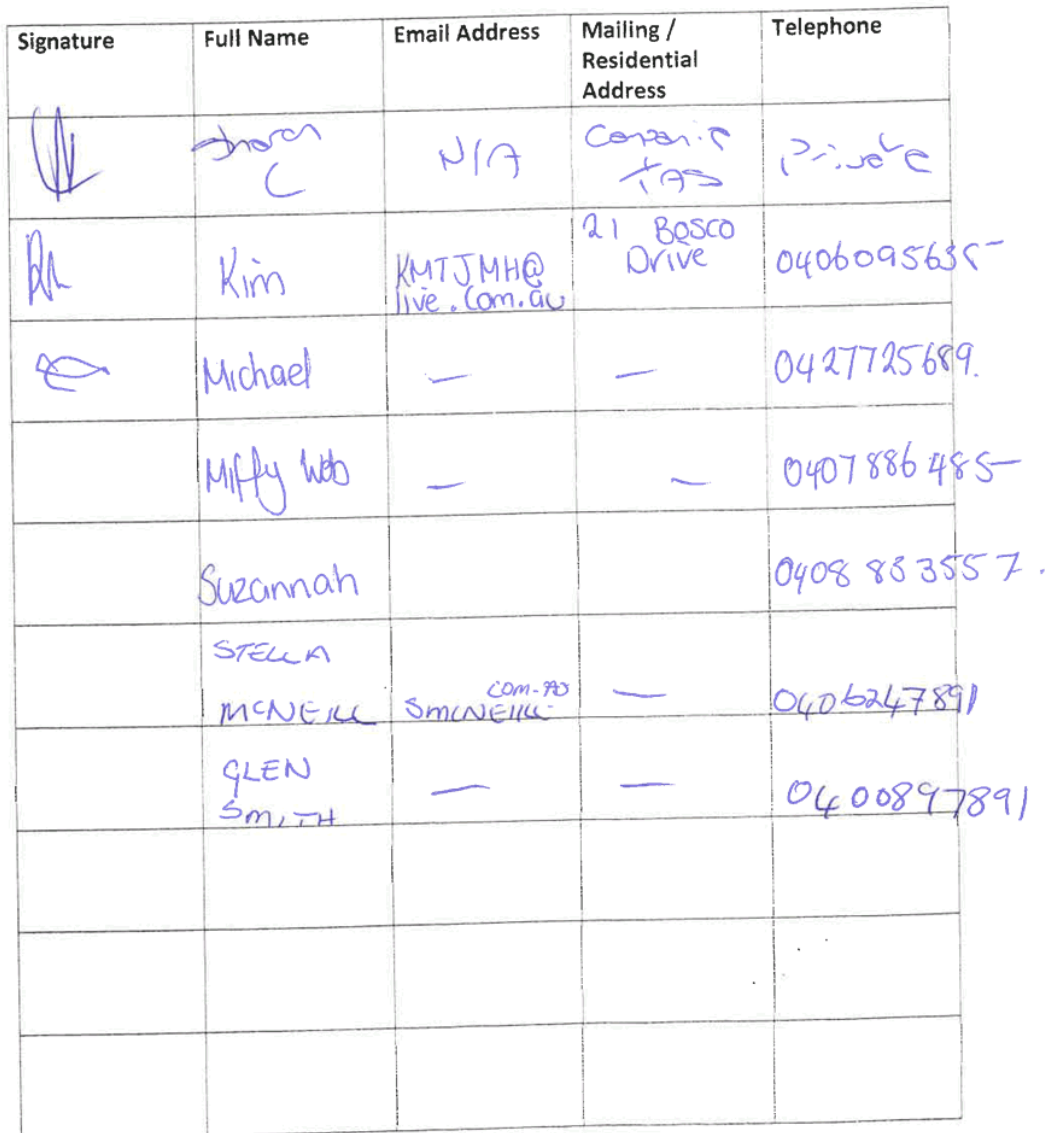 Signature Full Name Email Address Mailing / Residential Address Telephone
C N/A TAS Private
Kim KMTJMH@ live.com.au 21 Bosco Drive 0406095635
Michael — — 0427725689.
Miffy — — 0407886485
Suzannah 0408 833557.
STELLA MCNEILL SMCNEILL — 0406247891
GLEN SMITH — — 0400897891